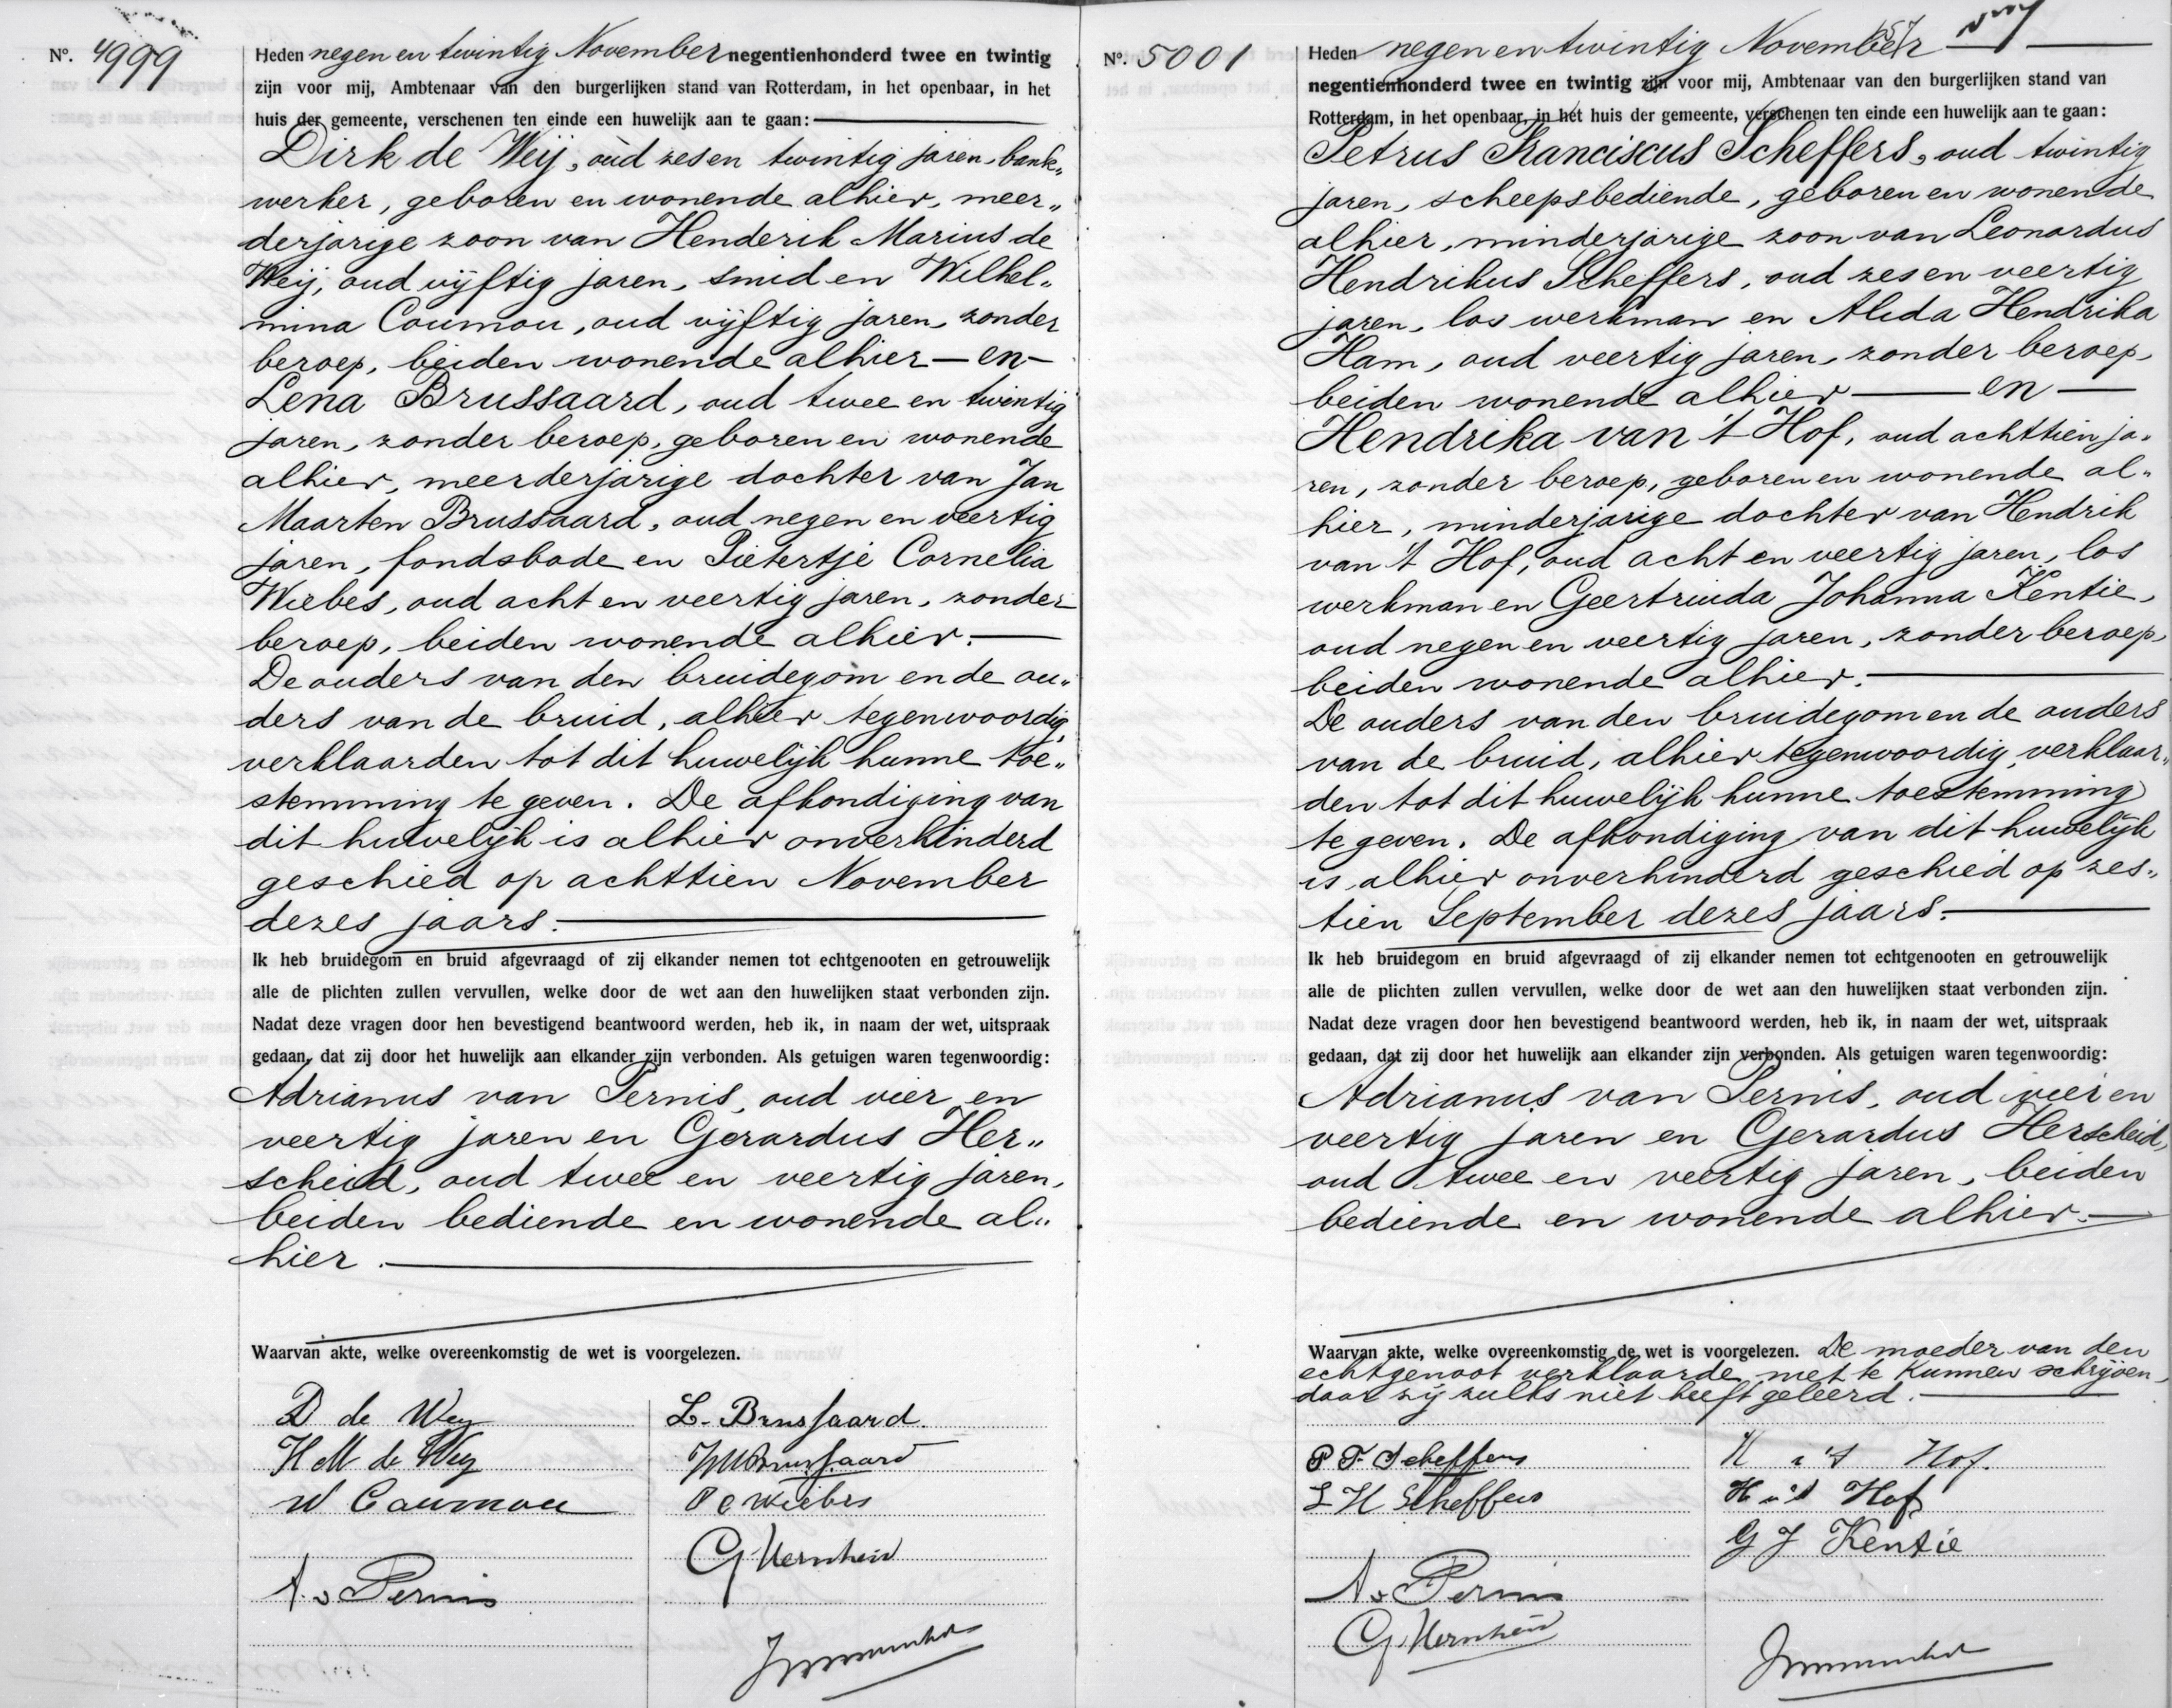 Nº. 4999
Heden negen en twintig November negentienhonderd twee en twintig
zijn voor mij, Ambtenaar van den burgerlijken stand van Rotterdam, in het openbaar, in het
huis der gemeente, verschenen ten einde een huwelijk aan te gaan:
Dirk de Weij, oud zes en twintig jaren, bank„
werker, geboren en wonende alhier, meer„
derjarige zoon van Henderik Marius de
Weij, oud vijftig jaren, smid en Wilhel„
mina Coumou, oud vijftig jaren, zonder
beroep, beiden wonende alhier — en —
Lena Brussaard, oud twee en twintig
jaren, zonder beroep, geboren en wonende
alhier, meerderjarige dochter van Jan
Maarten Brussaard, oud negen en veertig
jaren, fondsbode en Pietertje Cornelia
Wiebes, oud acht en veertig jaren, zonder
beroep, beiden wonende alhier.
De ouders van den bruidegom en de ou„
ders van de bruid, alhier tegenwoordig,
verklaarden tot dit huwelijk hunne toe„
stemming te geven. De afkondiging van
dit huwelijk is alhier onverhinderd
geschied op achttien November
dezes jaars.
Ik heb bruidegom en bruid afgevraagd of zij elkander nemen tot echtgenooten en getrouwelijk
alle de plichten zullen vervullen, welke door de wet aan den huwelijken staat verbonden zijn.
Nadat deze vragen door hen bevestigend beantwoord werden, heb ik, in naam der wet, uitspraak
gedaan, dat zij door het huwelijk aan elkander zijn verbonden. Als getuigen waren tegenwoordig:
Adrianus van Pernis, oud vier en
veertig jaren en Gerardus Her„
scheid, oud twee en veertig jaren,
beiden bediende en wonende al„
hier.
Waarvan akte, welke overeenkomstig de wet is voorgelezen.
D de Weij
L. Brussaard.
H M de Weij
JM Brussaard
W Coumou
P C Wiebes
G Herscheid
A. v Pernis
Nº. 5001
Heden negen en twintig November
negentienhonderd twee en twintig zijn voor mij, Ambtenaar van den burgerlijken stand van
Rotterdam, in het openbaar, in het huis der gemeente, verschenen ten einde een huwelijk aan te gaan:
Petrus Franciscus Scheffers, oud twintig
jaren, scheepsbediende, geboren en wonende
alhier, minderjarige zoon van Leonardus
Hendrikus Scheffers, oud zes en veertig
jaren, los werkman en Alida Hendrika
Ham, oud veertig jaren, zonder beroep,
beiden wonende alhier — en —
Hendrika van 't Hof, oud achttien ja„
ren, zonder beroep, geboren en wonende al„
hier, minderjarige dochter van Hendrik
van 't Hof, oud acht en veertig jaren, los
werkman en Geertruida Johanna Kentie,
oud negen en veertig jaren, zonder beroep,
beiden wonende alhier.
De ouders van den bruidegom en de ouders
van de bruid, alhier tegenwoordig, verklaar„
den tot dit huwelijk hunne toestemming
te geven. De afkondiging van dit huwelijk
is alhier onverhinderd geschied op zes„
tien September dezes jaars.
Ik heb bruidegom en bruid afgevraagd of zij elkander nemen tot echtgenooten en getrouwelijk
alle de plichten zullen vervullen, welke door de wet aan den huwelijken staat verbonden zijn.
Nadat deze vragen door hen bevestigend beantwoord werden, heb ik, in naam der wet, uitspraak
gedaan, dat zij door het huwelijk aan elkander zijn verbonden. Als getuigen waren tegenwoordig:
Adrianus van Pernis, oud vier en
veertig jaren en Gerardus Herscheid,
oud twee en veertig jaren, beiden
bediende en wonende alhier.
Waarvan akte, welke overeenkomstig de wet is voorgelezen. De moeder van den
echtgenoot verklaarde niet te kunnen schrijven,
daar zij zulks niet heeft geleerd.
P F Scheffers
H v 't Hof.
L H Scheffers
H v 't Hof
G J Kentie
A v Pernis
G. Herscheid